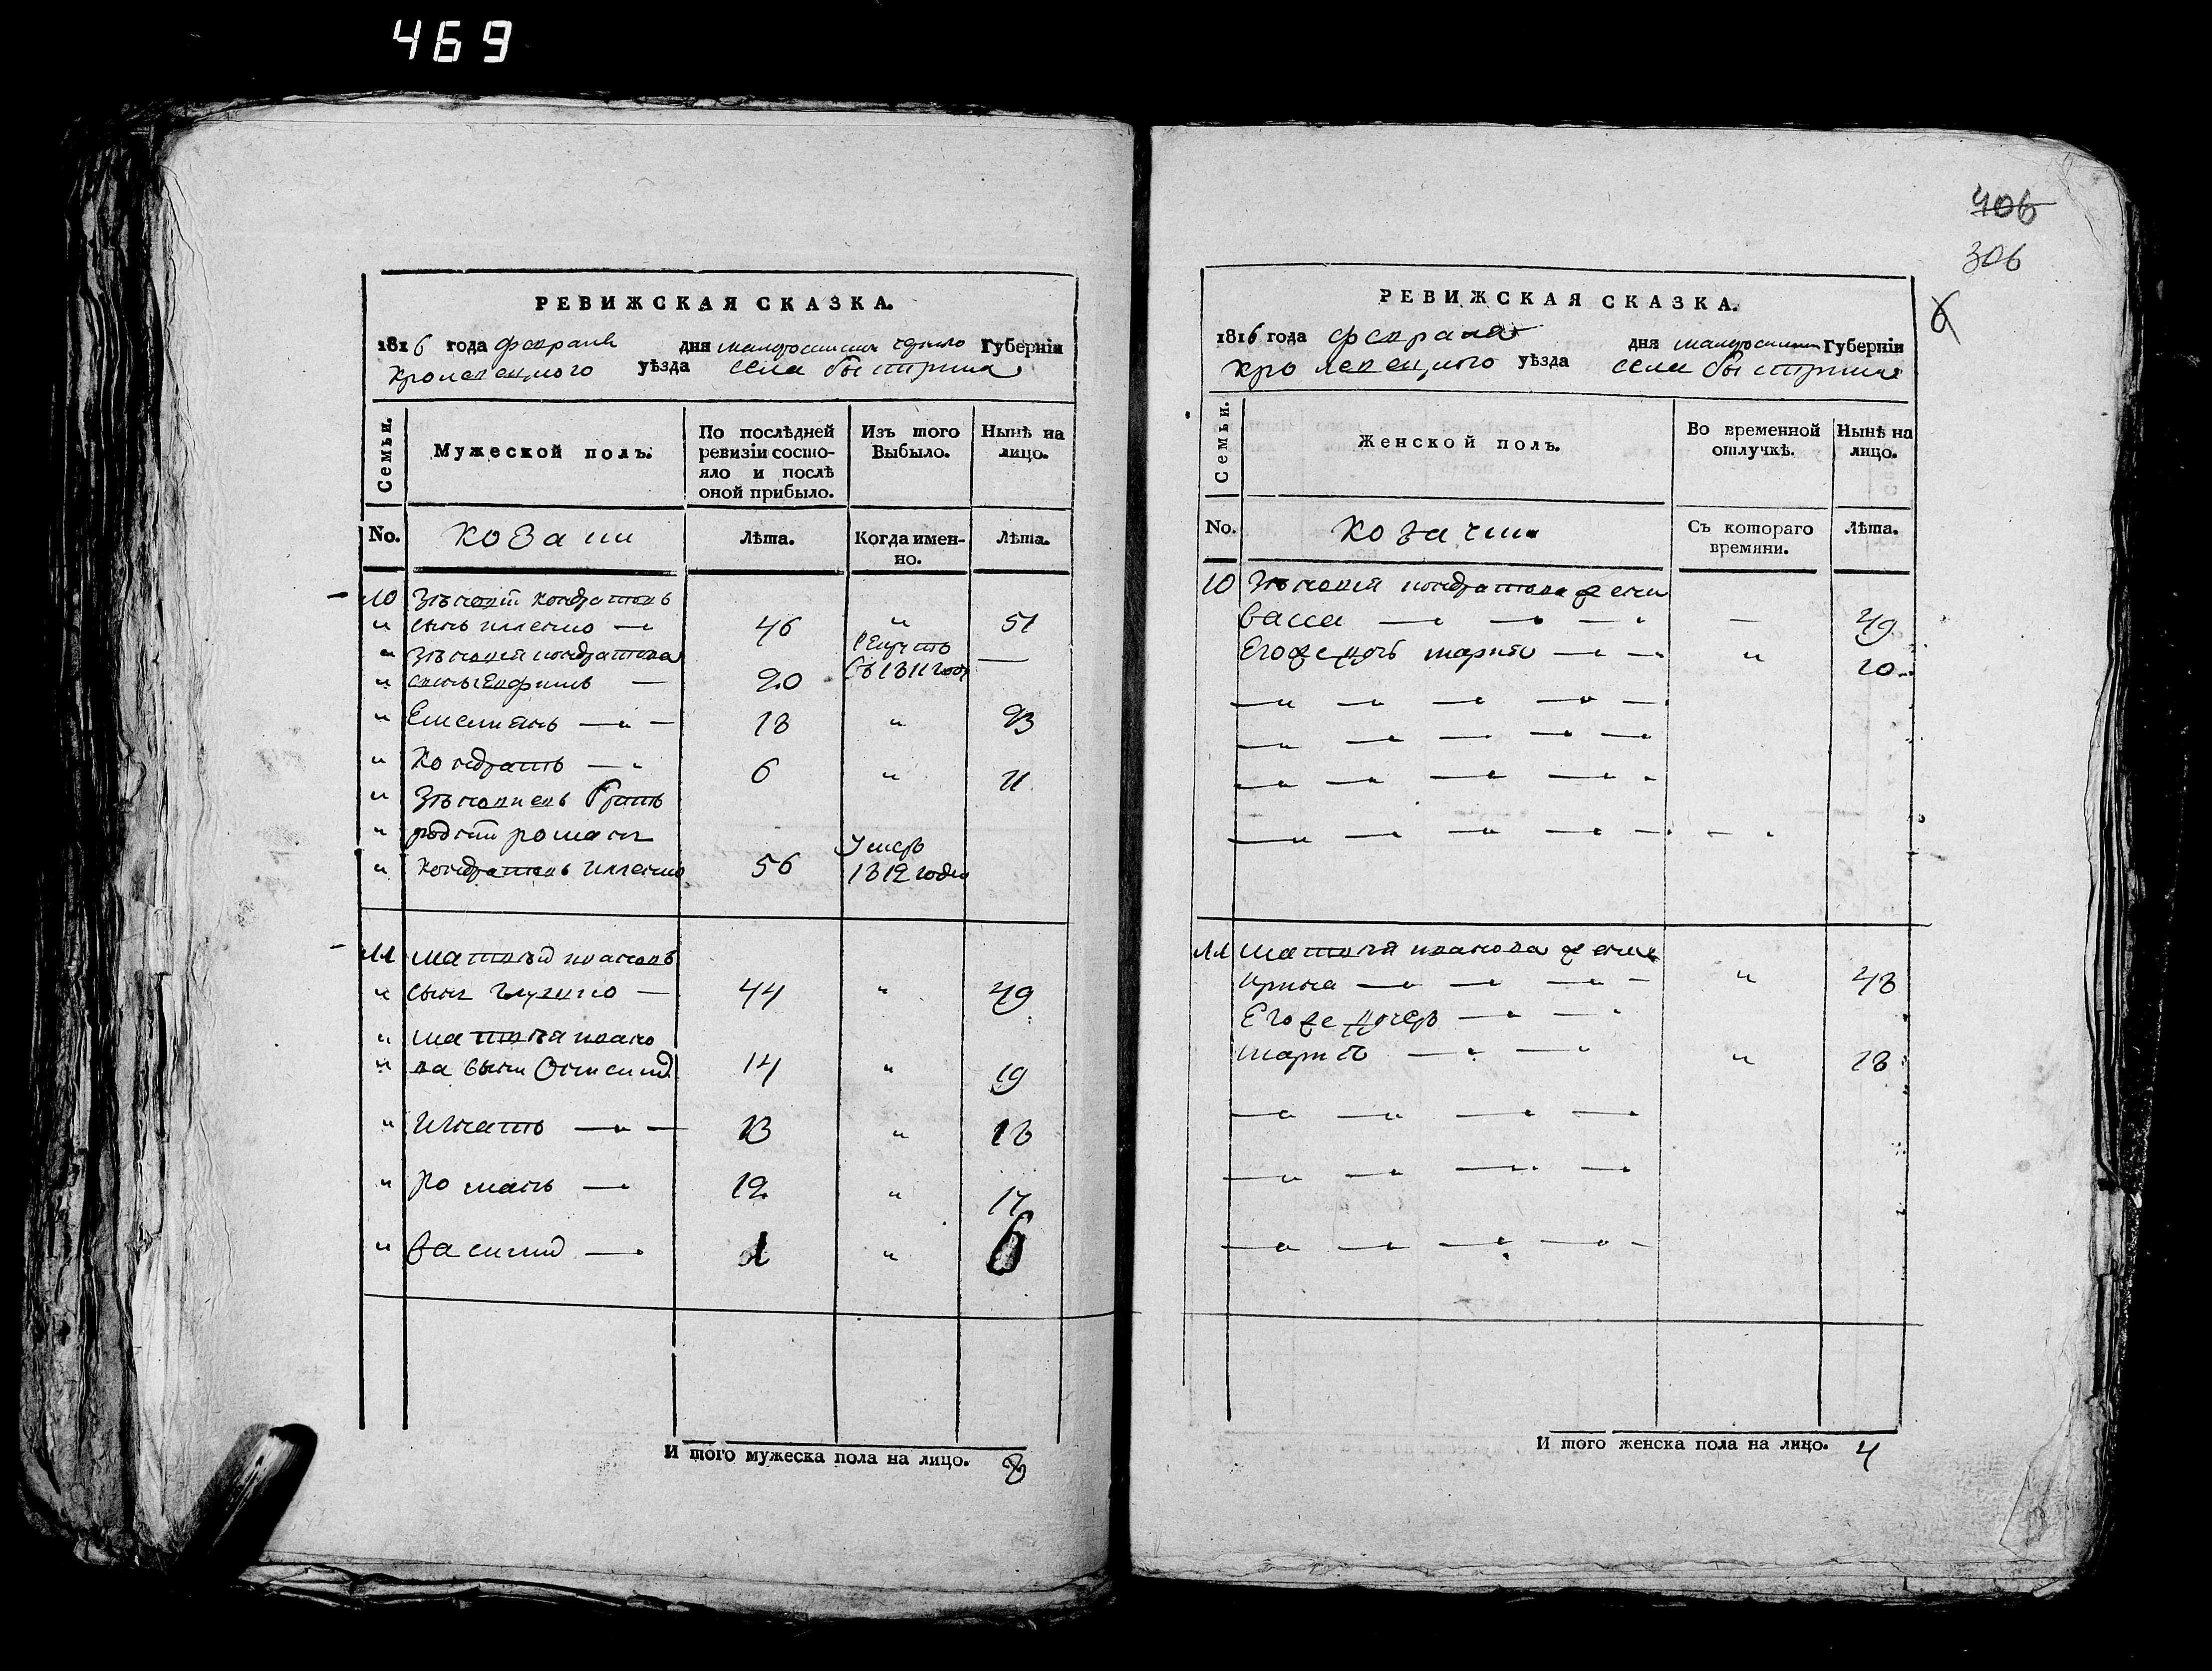 469
406
306
6
РЕВИЖСКАЯ СКАЗКА.
1816 года февраля дня Губернiи
Кролевецкого уѣзда села быстрика
Семьи. Мужеской полъ. По послѣдней ревизiи состояло и послѣ оной прибыло. Изъ того Выбыло. Нынѣ на лицо.
No. козаки Лѣта. Когда именно. Лѣта.
10 Зѣновiй кондратовъ
" сынъ — 46 " 51
" Зѣновiя кондратова
" сынъ Ефимъ — 20 Съ 1811 года —
" Емелиянъ — " — 18 " 23
" Кондратъ — " 6 " 11
" Зѣновiевъ братъ
" родний романъ
" кондратовъ 56 Умеръ 1812 года
11 матвѣй ивановъ
" сынъ — 44 " 49
" матвѣя ивано
" ва сынъ 14 " 19
" Игнатъ — " — 13 " 18
" Романъ — " 12 " 17
" василий — " 1 " 6
И того мужеска пола на лицо. 8
РЕВИЖСКАЯ СКАЗКА.
1816 года февраля дня Губернiи
Кролевецкого уѣзда села быстрика
Семьи. Женской полъ. Во временной отлучкѣ. Нынѣ на лицо.
No. козачки Съ котораго времяни. Лѣта.
10 Зѣновiя кондратова жена
васса — " — " — " — 49
Егоже дочь мария — " — " " 10
11 матвѣя иванова жена
ирина — " — " — " — " 48
Егоже дочерь — " — "
мария — " — " " 18
И того женска пола на лицо. 4